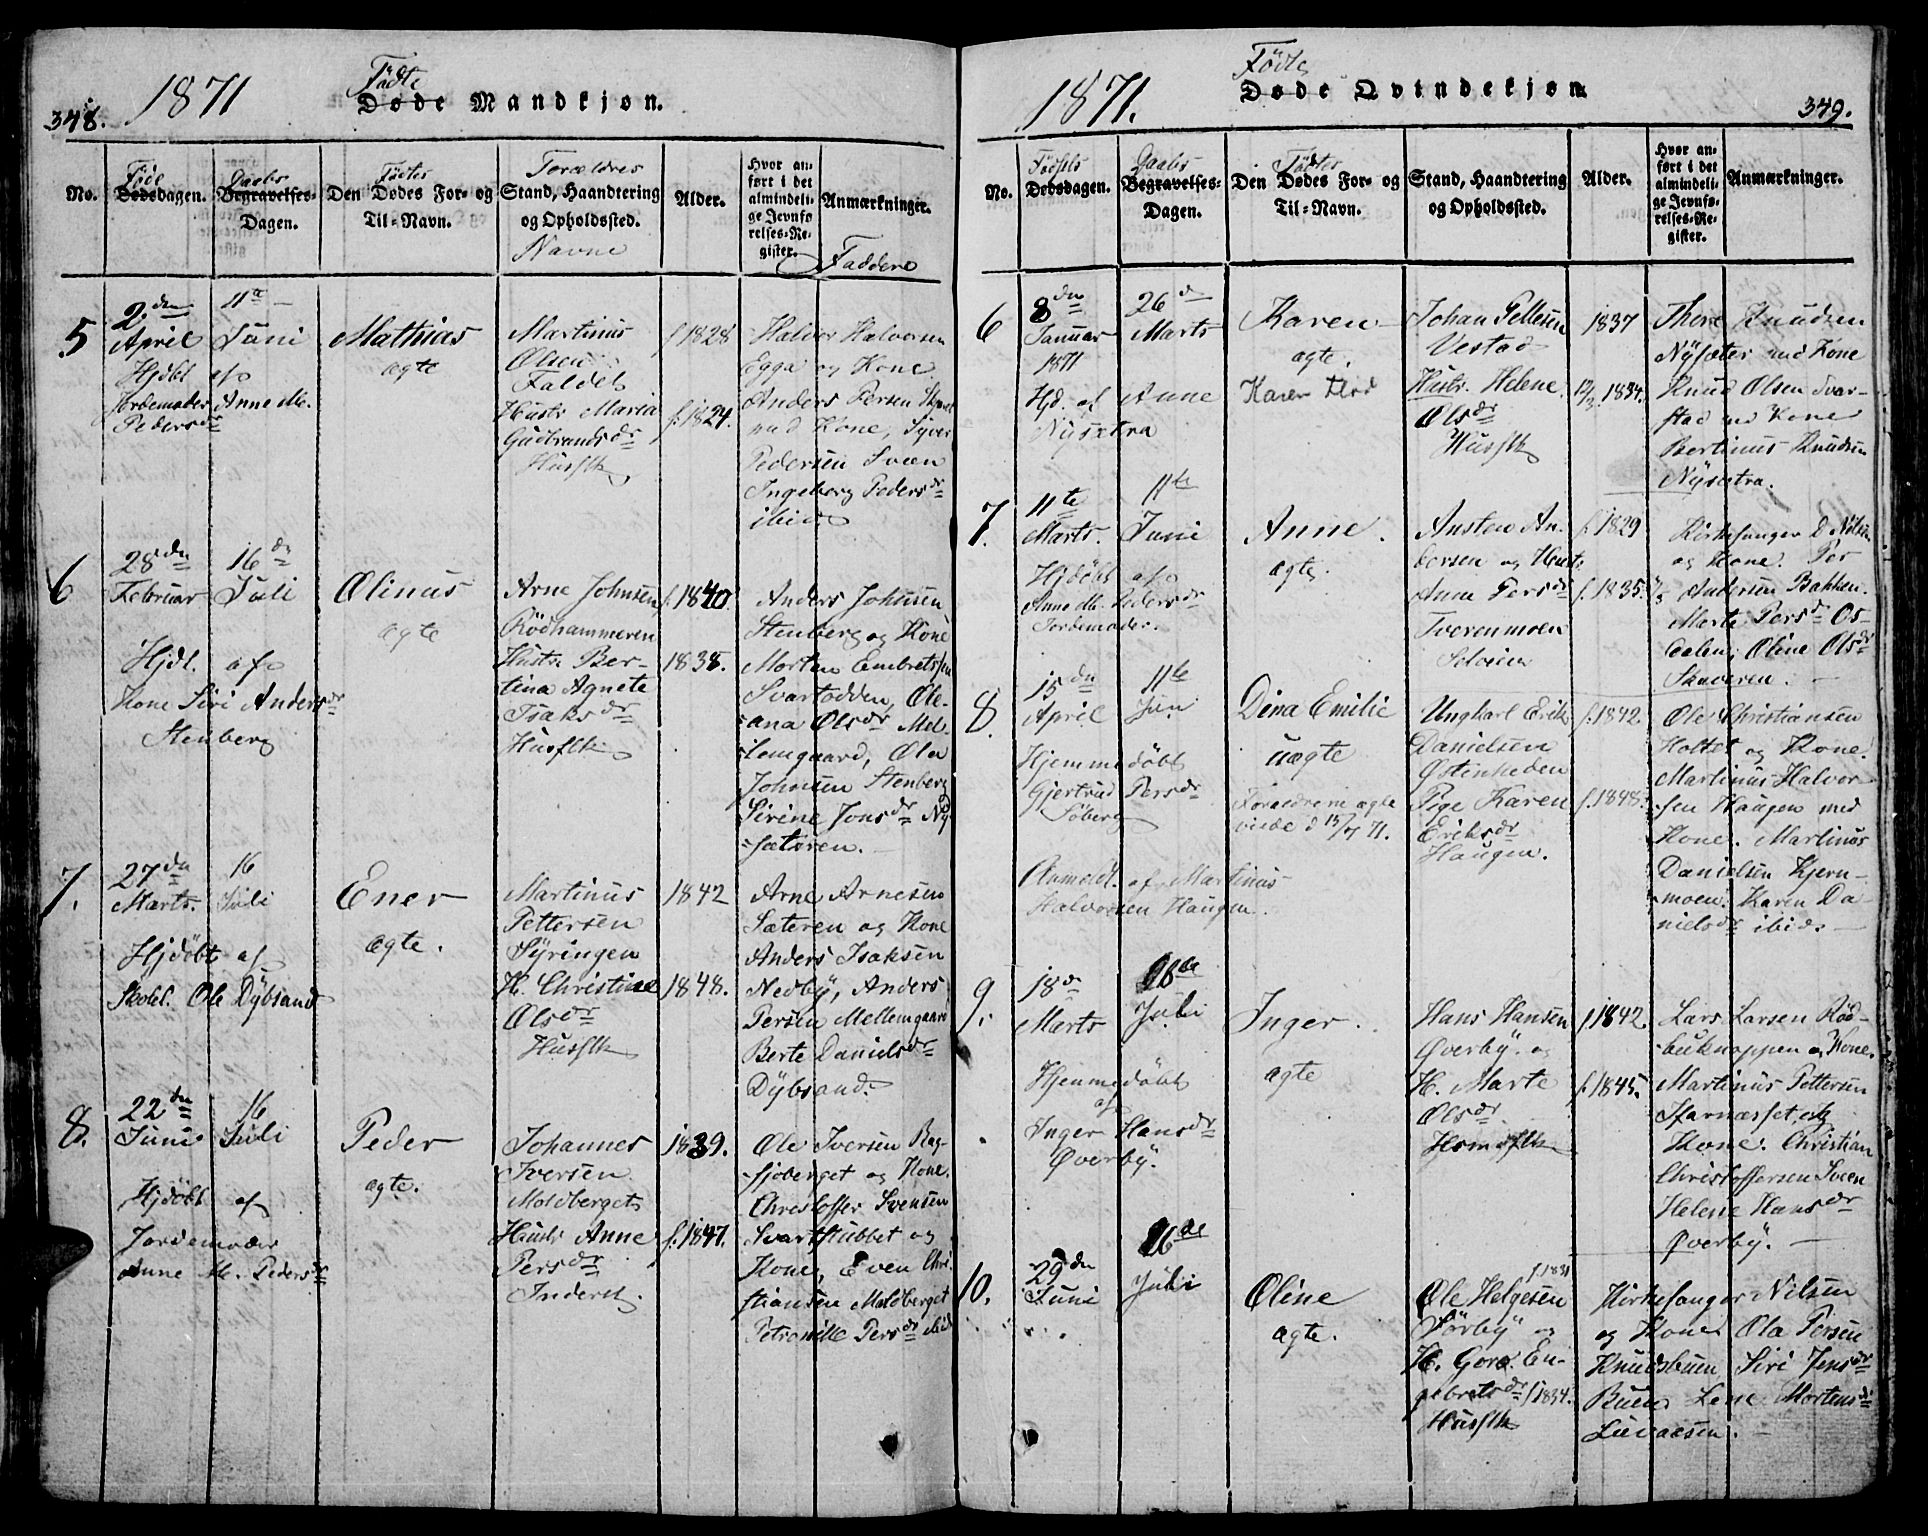 348. 1871 Födte
Døde Mandkjøn.
No.
Föde
Dødsdagen.
Daabs
Begravelses-
Dagen.
Födtes
Den Dødes For- og
Til-Navn.
Forældres
Stand, Haandtering
og Opholdssted.
Navne
Alder.
Hvor an-
ført i det
almindeli-
ge Jevnfø
relses-Re-
gister.
Anmærkninger.
Faddere
5
2den
April
11te
Juni
Hjdöbt af
Jordemoder Anne M.
Pedersdr
Mathias
ægte
Martinus
Olsen
Faldet
Hustr Maria
Gudbrandsdr
Husflk
f. 1828
f. 1824.
Halvor Halvorsen
Egga og Kone
Anders Persen
med Kone, Syver
Pedersen Sveen
Ingeborg Pedersdr
ibid
6
28den
Februar
16dn
Juli
Hjdl. af
Kone Siri Andersdr
Stenberg
Olinus
ægte
Arne Johnsen
Rödhammeren
Hustr Ber-
tina Agnete
Isaksdr
Husflk
f. 1840.
1838.
Anders Johnsen
Stenberg og Kone
Morten Embretsen
Svartodden, Ole-
ana Olsdr Mel-
lemgaard, Ole
Johnsen Stenberg
Sirine Jonsdr Ny-
sæteren.
7.
27dn
Marts.
16
Juli
Hjdöbt af
Skolel. Ole Dybsand
Ener
ægte.
Martinus
Pettersen
Syringen
H. Christine
Olsdr
Husflk
1842
1848.
Arne Arnesen
Sæteren og Kone
Anders Isaksen
Nedby, Anders
Persen Mellemgaard
Berte Danielsdr
Dybsand.
8.
22dn
Juni
16
Juli
Hjdöbt af
Jordemoder
Anne M. Pedersdr
Peder
ægte.
Johannes
Iversen
Moldberget
Hustr Anne
Persdr
Inderst.
1839.
f. 1847.
Ole Iversen Bag-
sjöberget og Kone.
Christoffer Svensen
Svartstubbet og
Kone, Even Chri-
stiansen Moldberget
Petronille Persdr ibid
1871. Födte 349.
Døde Qvindekjøn
No.
Födsels
Dødsdagen.
Daabs
Begravelses-
Dagen.
Födtes
Den Dødes For- og
Til-Navn.
Stand, Haandtering
og Opholdssted.
Alder.
Hvor an-
ført i det
almindeli-
ge Jevnfø-
relses-Re-
gister.
Anmærkninger.
6
8dn
Januar
1871
26d
Marts
Hjd. af Anne
Nysætra
Karen
ægte.
Karen
Johan Pettersen
Vestad
Hustr. Helene
Olsdr
Husflk
1837
12/3 1834.
Thore Knudsen
Nysæter med Kone
Knud Olsen Svar-
stad med Kone
Bertinus Knudsen
Nysætra.
7.
11te
Marts.
11te
Juni
Hjdöbt af
Anne M. Pedersdr
Jordemoder.
Anne.
ægte.
Austen An-
dersen og Hustr
Anne Persdr
Tverenmoen
f. 1829
f. 1835.
Kirkesanger O Nilsen
og Kone. Per
Andersen Bakken.
Marte Persdr Os-
dalen, Oline Olsdr
Skaveren.
8.
15dn
April
11te
Jun
Hjemmedöbt
Gjertrud Persdr
Söberg
Anmeldt. af Martinus
Halvorsen Haugen.
Dina Emilie
uægte
Forældrene ægte
viede d 15/7 71.
Ungkarl Erik
Danielsen
Östenheden
Pige Karen
Eriksdr
Haugen.
f. 1842.
f. 1848.
Ole Christiansen
Holtet og Kone
Martinus Halvor-
sen Haugen med
Kone. Martinus
Danielsen Kjern-
moen. Karen Da-
nielsdr ibid.
9.
18d
Marts
16de
Juli
Hjemmedöbt
af
Inger Hansdr
Øverby.
Inger.
ægte
Hans Hansen
Øverby. og
H. Marte
Olsdr
f. 1842.
f. 1845.
Lars Larsen Röd-
buknappen og Kone.
Martinus Pettersen
Kone. Christian
Christoffersen Sveen
Helene Hansdr
Øverby.
10.
29dn
Juni
16de
Juli
Oline
ægte.
f 1831
Ole Helgesen
Sörby og
H. Goro En-
gebretsdr f 1834.
Husflk
Kirkesanger Nilsen
og Kone Ola Persen
Knudsbuen Siri Jensdr
Buen Lene Mortensdr